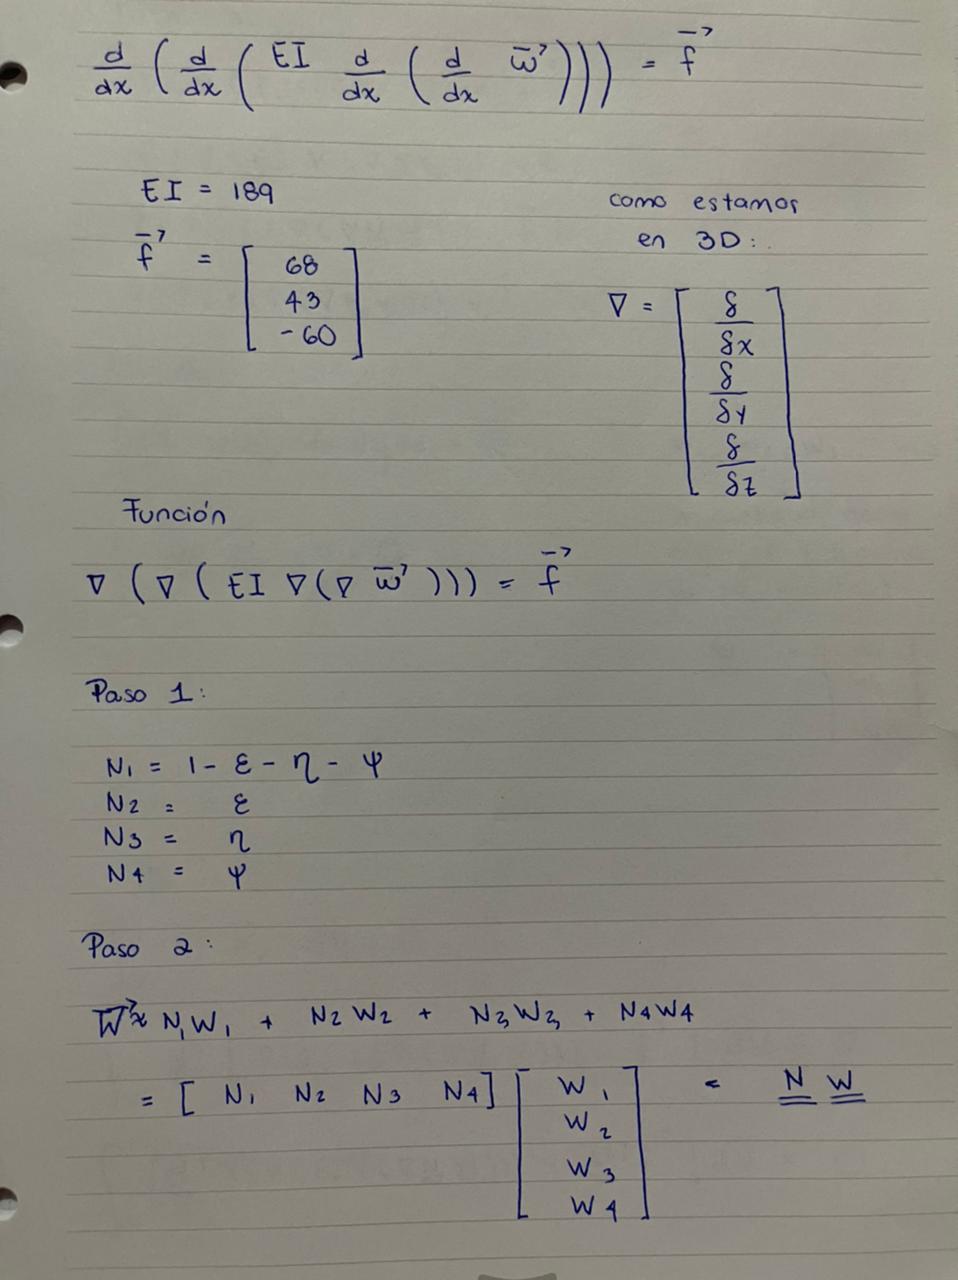 d/dx ( d/dx ( EI d/dx ( d/dx w⃗ ))) = f⃗
EI = 189
como estamos
en 3D:
f⃗ = [ 68
43
-60 ]
∇ = [ δ/δx
δ/δy
δ/δz ]
Función
∇ ( ∇ ( EI ∇ ( ∇ w⃗ ))) = f⃗
Paso 1:
N1 = 1 - ε - η - ψ
N2 = ε
N3 = η
N4 = ψ
Paso 2:
W⃗ ≈ N1W1 + N2W2 + N3W3 + N4W4
= [ N1 N2 N3 N4 ] [ W1
W2
W3
W4 ] = N W